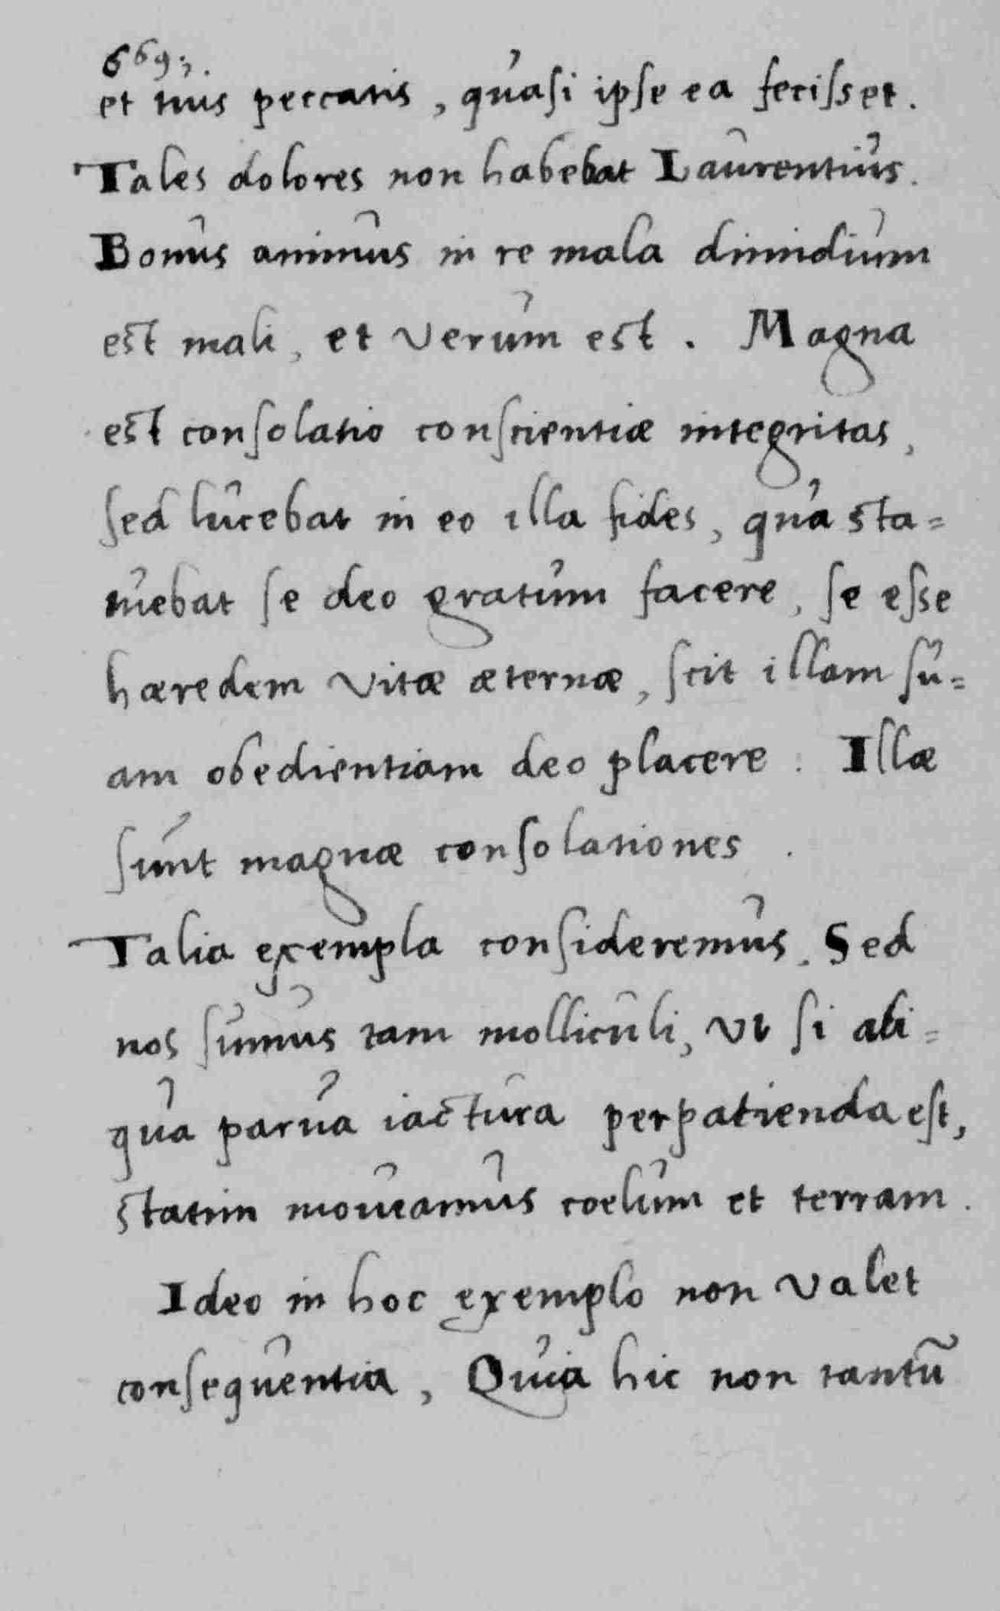 669;.
et tuis peccatis, quasi ipse ea fecisset.
Tales dolores non habebat Laurentius.
Bonus animus in re mala dimidium
est mali, et verum est. Magna
est consolatio conscientiæ integritas,
sed lucebat in eo illa fides, qua sta=
tuebat se deo gratum facere, se esse
hæredem vitæ æternæ, scit illam su=
am obedientiam deo placere. Illæ
sunt magnæ consolationes.
Talia exempla consideremus. Sed
nos sumus tam molliculi, vt si ali=
qua parua iactura perpatienda est,
statim moueamus coelum et terram.
Ideo in hoc exemplo non valet
consequentia, Quia hic non tantū